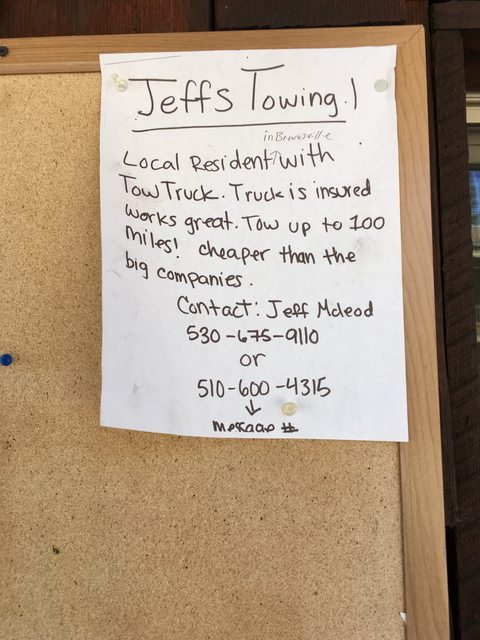 Jeffs Towing!
in Brownsville
Local Resident with
Tow Truck. Truck is insured
works great. Tow up to 100
miles! cheaper than the
big companies.
Contact: Jeff Mcleod
530-675-9110
or
510-600-4315
↓
message #